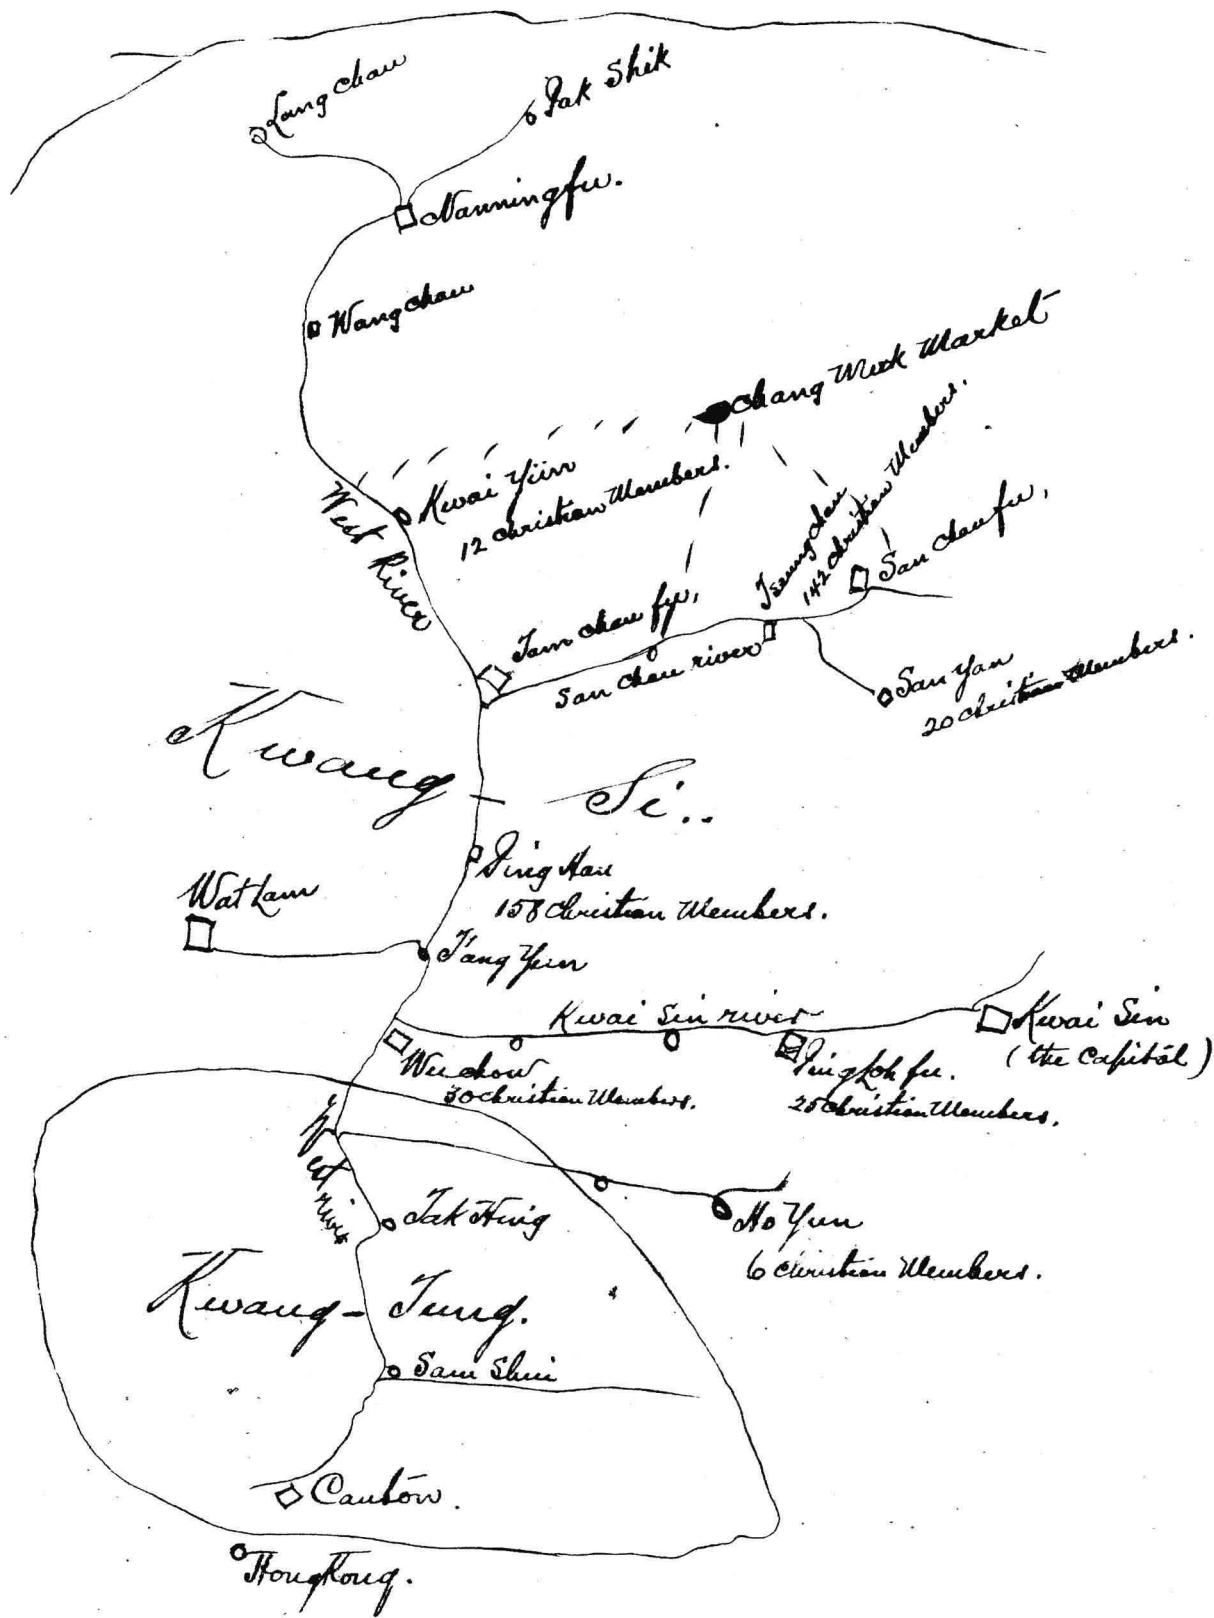 Lung chau
Pak Shik
Nanningfu.
Wang chau
Chang Muk Market
Kwai Yün
12 Christian Members.
West River
Tseung chau
142 Christian Members.
San chau fu,
Tam chau fu,
San chau river
San Yan
20 Christian Members.
Kwang - Si..
Ping Nau
Christian Members.
Wat Lam
T'ang Yun
Kwai Sin river
Kwai Sin
(the Capital)
Wuchow
30 Christian Members.
Ping Loh fu.
25 Christian Members.
West river
Tak Hing
Ho Yun
6 Christian Members.
Kwang - Tung.
Sam Shui
Canton.
Hong Kong.